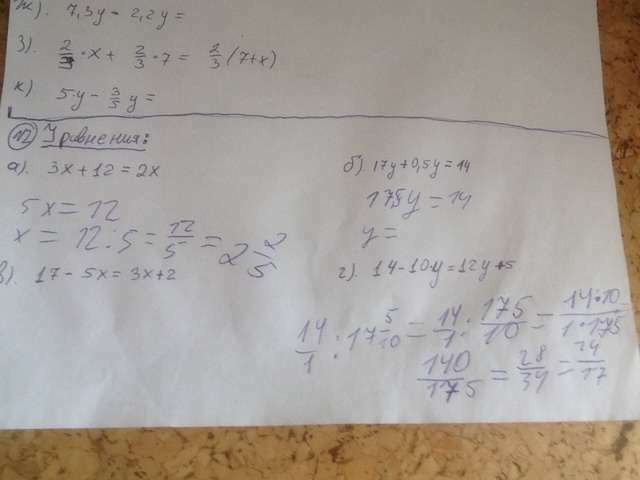 ж). 7,3y - 2,2y =
з). 2/3 · x + 2/3 · 7 = 2/3 (7+x)
к) 5y - 3/5 y =
№2 Уравнения:
а). 3x + 12 = 2x
5x = 12
x = 12 : 5 = 12/5 = 2 2/5
б). 17y + 0,5y = 14
17,5y = 14
y =
в). 17 - 5x = 3x + 2
г). 14 - 10y = 12y + 5
14/1 : 17 5/10 = 14/1 : 175/10 = 14·10/1·175
140/175 = 28/34 = 14/17